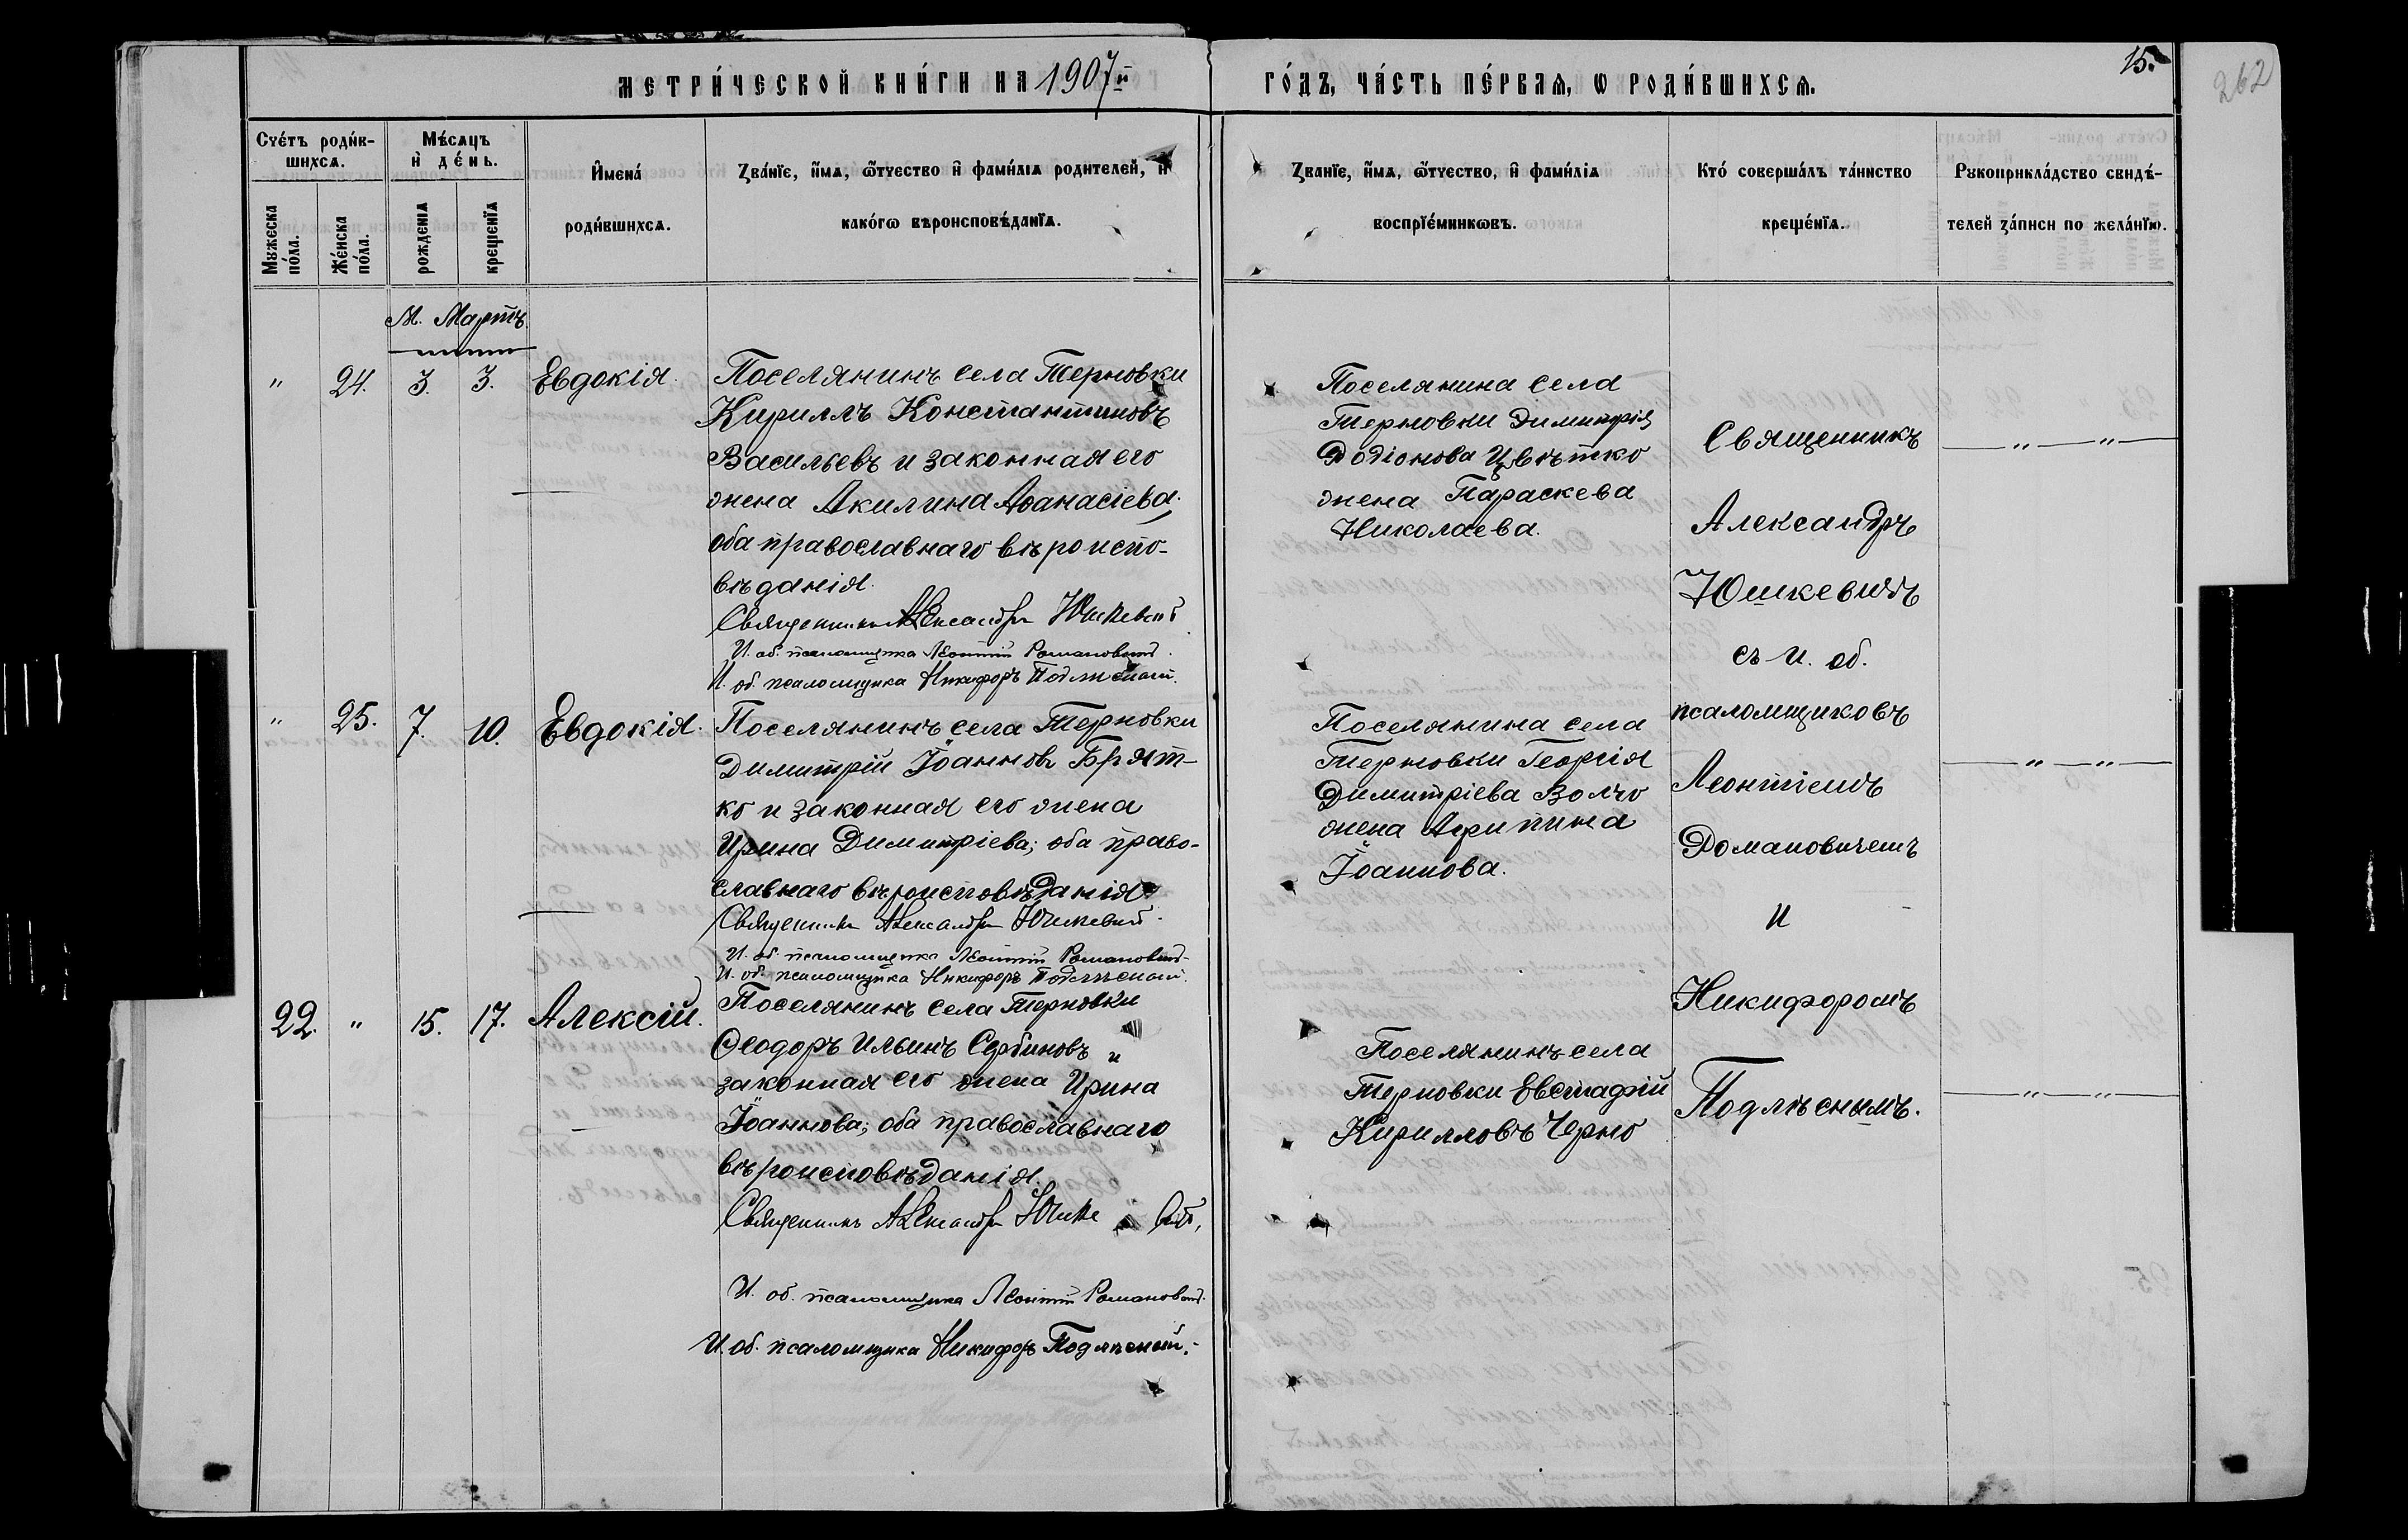 МЕТРИ́ЧЕСКОЙ КНИ́ГИ НА 1907й
ГО́ДЪ, ЧА́СТЬ ПЕ́РВАѦ, Ѡ РОДИ́ВШИХСѦ.
15.
262
Счétъ роди́в-
шихсѧ.
Мѣ́сѧцъ
и҆ де́нь.
Мꙋжеска
по́ла.
Же́нска
по́ла.
рожденіѧ
крещенїѧ
И҆мена́
роди́вшихсѧ.
Зва́нїе, и҆́мѧ, ѻ҆́тчество и҆ фами́лїѧ родителей, и҆
како́гѡ вѣроисповѣ́данїѧ.
Званїе, и҆́мѧ, ѻ҆́тчество, и҆ фами́лїѧ
воспрїе́мникѡвъ.
Кто́ соверша́лъ та́инство
креще́нїѧ.
Рꙋкоприкла́дство свидѣ́-
телей за́писи по жела́нїю.
М. Мартъ.
" 24. 3. 3. Евдокія.
Поселянинъ села Терновки
Кириллъ Константиновъ
Васильевъ и законная его
жена Акилина Аѳанасіева;
оба православнаго вѣроиспо-
вѣданія.
Священникъ Александръ Юшкевичъ
И. об. псаломщика Леонтій Романовичъ.
И. об. псаломщика Никифоръ Подлѣсный.
Поселянина села
Терновки Димитрія
Родіонова Цвѣтко
жена Параскева
Николаева.
Священникъ
Александръ
Юшкевичъ
съ и. об.
псаломщиковъ
Леонтіемъ
Романовичемъ
и
Никифоромъ
Подлѣснымъ.
— " — " —
" 25. 7. 10. Евдокія.
Поселянинъ села Терновки
Димитрій Іоанновъ Брят-
ко и законная его жена
Ирина Димитріева; оба право-
славнаго вѣроисповѣданія.
Священникъ Александръ Юшкевичъ.
И. об. псаломщика Леонтій Романовичъ.
И. об. псаломщика Никифоръ Подлѣсный.
Поселянина села
Терновки Георгія
Димитріева Волчо
жена Агрипина
Іоаннова.
— " — " —
22. " 15. 17. Алексій.
Поселянинъ села Терновки
Ѳеодоръ Ильинъ Сербиновъ и
законная его жена Ирина
Іоаннова; оба православнаго
вѣроисповѣданія.
Священникъ Александръ Юшкевичъ,
И. об. псаломщика Леонтій Романовичъ.
И. об. псаломщика Никифоръ Подлѣсный.
Поселянинъ села
Терновки Евстафій
Кирилловъ Черно
— " — " —